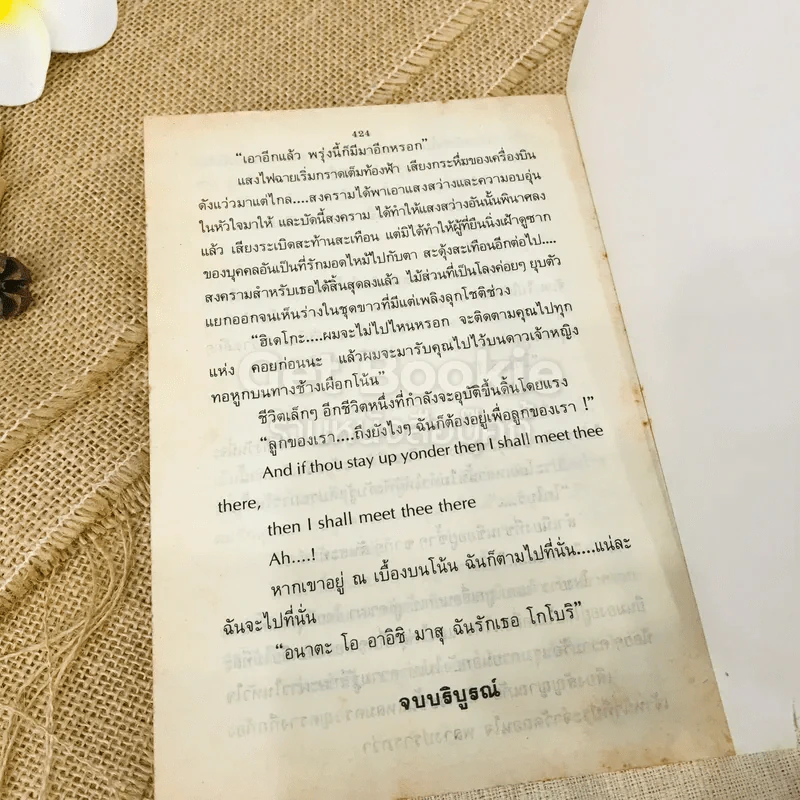 424
"เอาอีกแล้ว พรุ่งนี้ก็มีมาอีกหรอก"
แสงไฟฉายเริ่มกราดเต็มท้องฟ้า เสียงกระหึ่มของเครื่องบิน
ดังแว่วมาแต่ไกล....สงครามได้พาเอาแสงสว่างและความอบอุ่น
ในหัวใจมาให้ และบัดนี้สงคราม ได้ทำให้แสงสว่างอันนั้นพินาศลง
แล้ว เสียงระเบิดสะท้านสะเทือน แต่มิได้ทำให้ผู้ที่ยืนนิ่งเฝ้าดูซาก
ของบุคคลอันเป็นที่รักมอดไหม้ไปกับตา สะดุ้งสะเทือนอีกต่อไป....
สงครามสำหรับเธอได้สิ้นสุดลงแล้ว ไม้ส่วนที่เป็นโลงค่อยๆ ยุบตัว
แยกออกจนเห็นร่างในชุดขาวที่มีแต่เพลิงลุกโชติช่วง
"ฮิเดโกะ....ผมจะไม่ไปไหนหรอก จะติดตามคุณไปทุก
แห่ง คอยก่อนนะ แล้วผมจะมารับคุณไปไว้บนดาวเจ้าหญิง
ทอหูกบนทางช้างเผือกโน้น"
ชีวิตเล็กๆ อีกชีวิตหนึ่งที่กำลังจะอุบัติขึ้นดิ้นโดยแรง
"ลูกของเรา....ถึงยังไงๆ ฉันก็ต้องอยู่เพื่อลูกของเรา !"
And if thou stay up yonder then I shall meet thee
there,
then I shall meet thee there
Ah....!
หากเขาอยู่ ณ เบื้องบนโน้น ฉันก็ตามไปที่นั่น....แน่ละ
ฉันจะไปที่นั่น
"อนาตะ โอ อาอิชิ มาสุ ฉันรักเธอ โกโบริ"
จบบริบูรณ์
Get Bookie